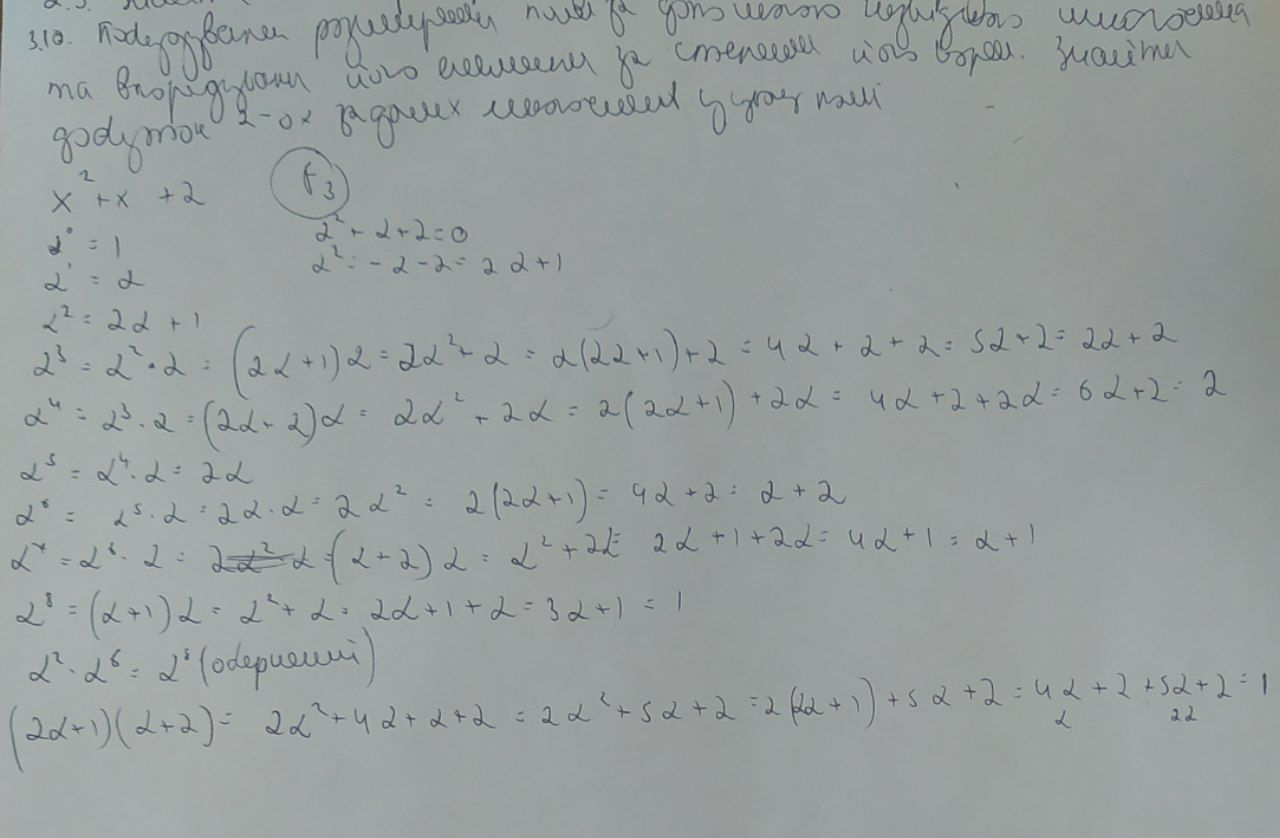 3.10. Побудувати розширення поля за допомогою незвідного многочлена
та впорядкувати його елементи за степенем його корен. Знайти
добуток 2-ох заданих многочленів у цьому полі
x² + x + 2 F₃
α⁰ = 1 α² + α + 2 = 0
α¹ = α α² = -α - 2 = 2α + 1
α² = 2α + 1
α³ = α² · α = (2α + 1)α = 2α² + α = 2(2α + 1) + α = 4α + 2 + α = 5α + 2 = 2α + 2
α⁴ = α³ · α = (2α + 2)α = 2α² + 2α = 2(2α + 1) + 2α = 4α + 2 + 2α = 6α + 2 = 2
α⁵ = α⁴ · α = 2α
α⁶ = α⁵ · α = 2α · α = 2α² = 2(2α + 1) = 4α + 2 = α + 2
α⁷ = α⁶ · α = (α + 2)α = α² + 2α = 2α + 1 + 2α = 4α + 1 = α + 1
α⁸ = (α + 1)α = α² + α = 2α + 1 + α = 3α + 1 = 1
α² · α⁶ = α⁸ (обернений)
(2α + 1)(α + 2) = 2α² + 4α + α + 2 = 2α² + 5α + 2 = 2(2α + 1) + 5α + 2 = 4α + 2 + 5α + 2 = 1
α 2α